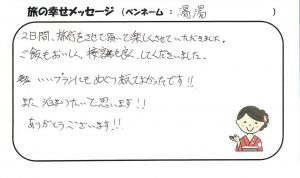 旅の幸せメッセージ (ペンネーム : 湯湯)
2日間、旅行をさせて頂いて楽しくさせていただきました。
ご飯もおいしく、接客も良くしてくださいました。
いいプランにもめぐりあえてよかったです!!
また、泊まりたいと思います!!
ありがとうございます!!